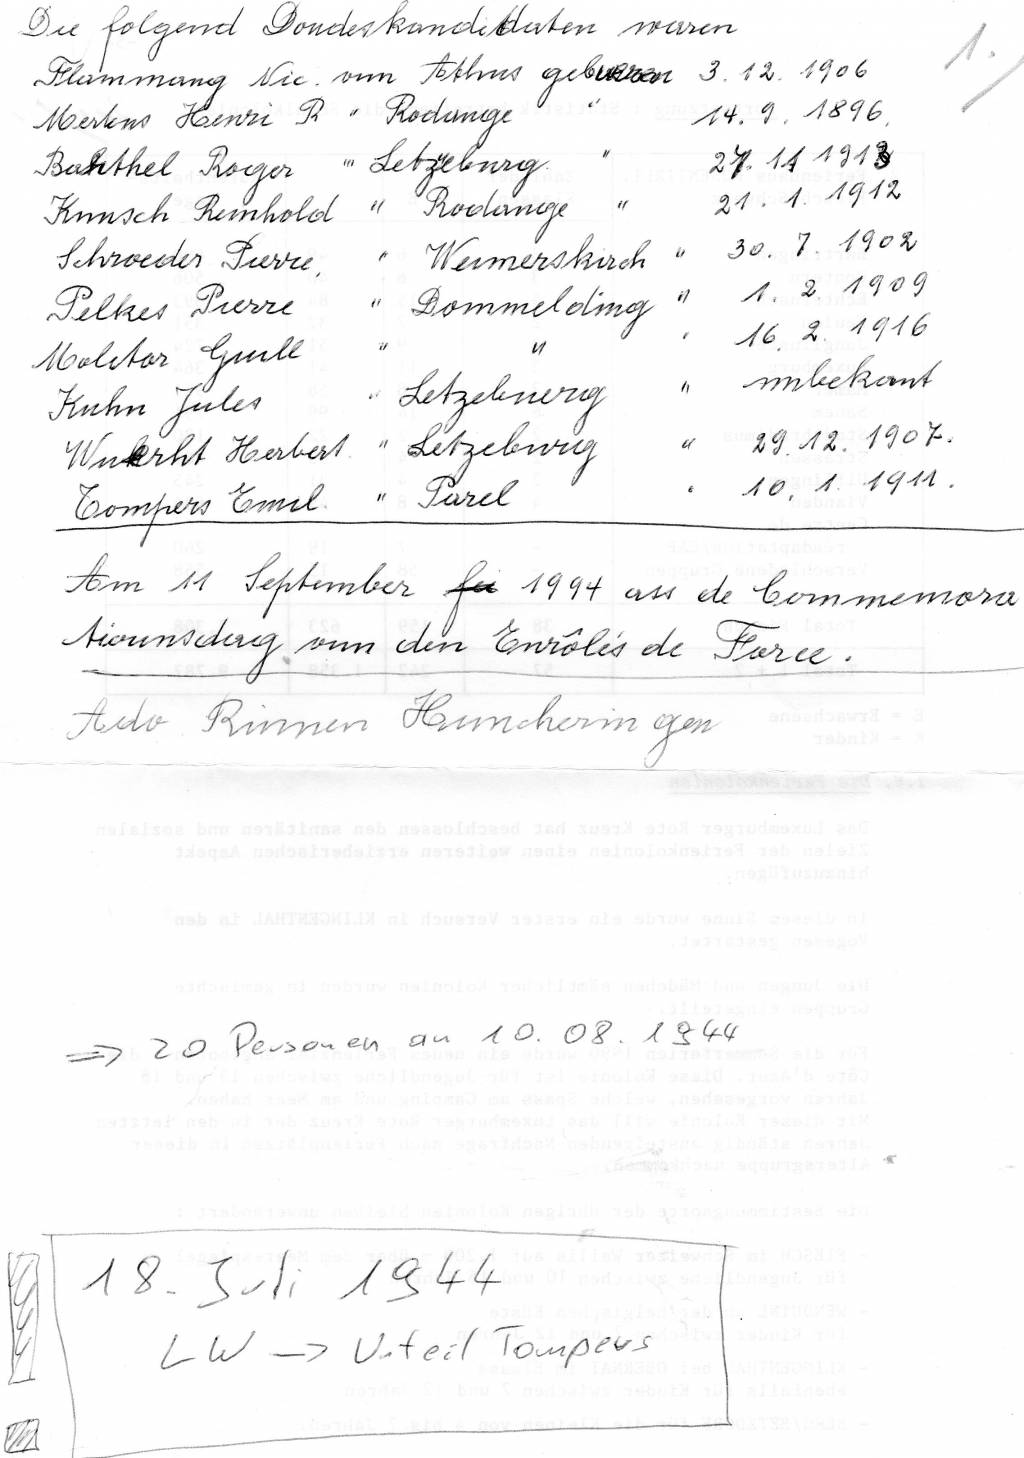 Die folgend Doudeskandidaten waren
1.)
Flammang Nic. vun Athus geburen 3.12.1906
Mertens Henri R " Rodange " 14.9.1896.
Barthel Roger " Letzeburg. " 27.11 1913
Kunsch Reinhold " Rodange " 21.1.1912
Schroeder Pierre, " Weimerskirch " 30.7.1902
Pelkes Pierre " Dommelding " 1.2.1909
Molitor Guill " " " 16.2.1916
Kuhn Jules " Letzebuerg " unbekant
Herbert. " Letzeburg " 29.12.1907.
Tompers Emil. " Parel " 10.1.1911.
Am 11 September 1994 ass de Commemora
tiounsdag vun den Enrôlés de Force.
Ado Rinnen Huncheringen
⇒ 20 Personen am 10.08.1944
18. Juli 1944
LW → Urteil Tompers